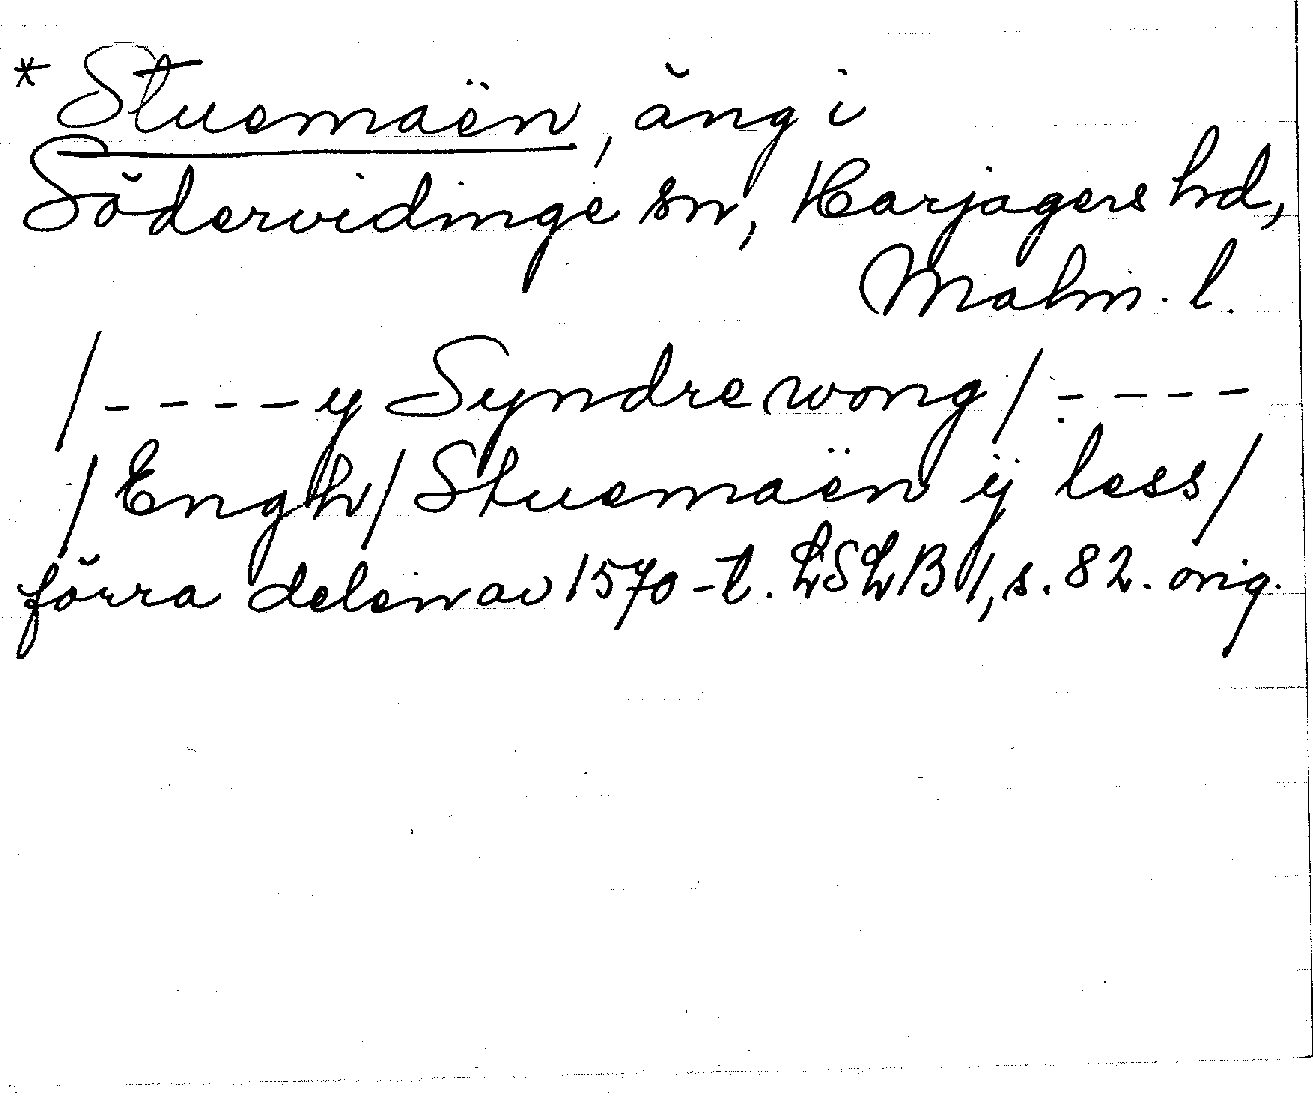 * Stuemaën, äng i
Södervidinge sn, Harjagers hd,
Malm. l.
/----y Syndre wong/----
/Engh/ Stuemaën ÿ less/
förra delen av 1570-t. LSLB 1, s. 82. orig.